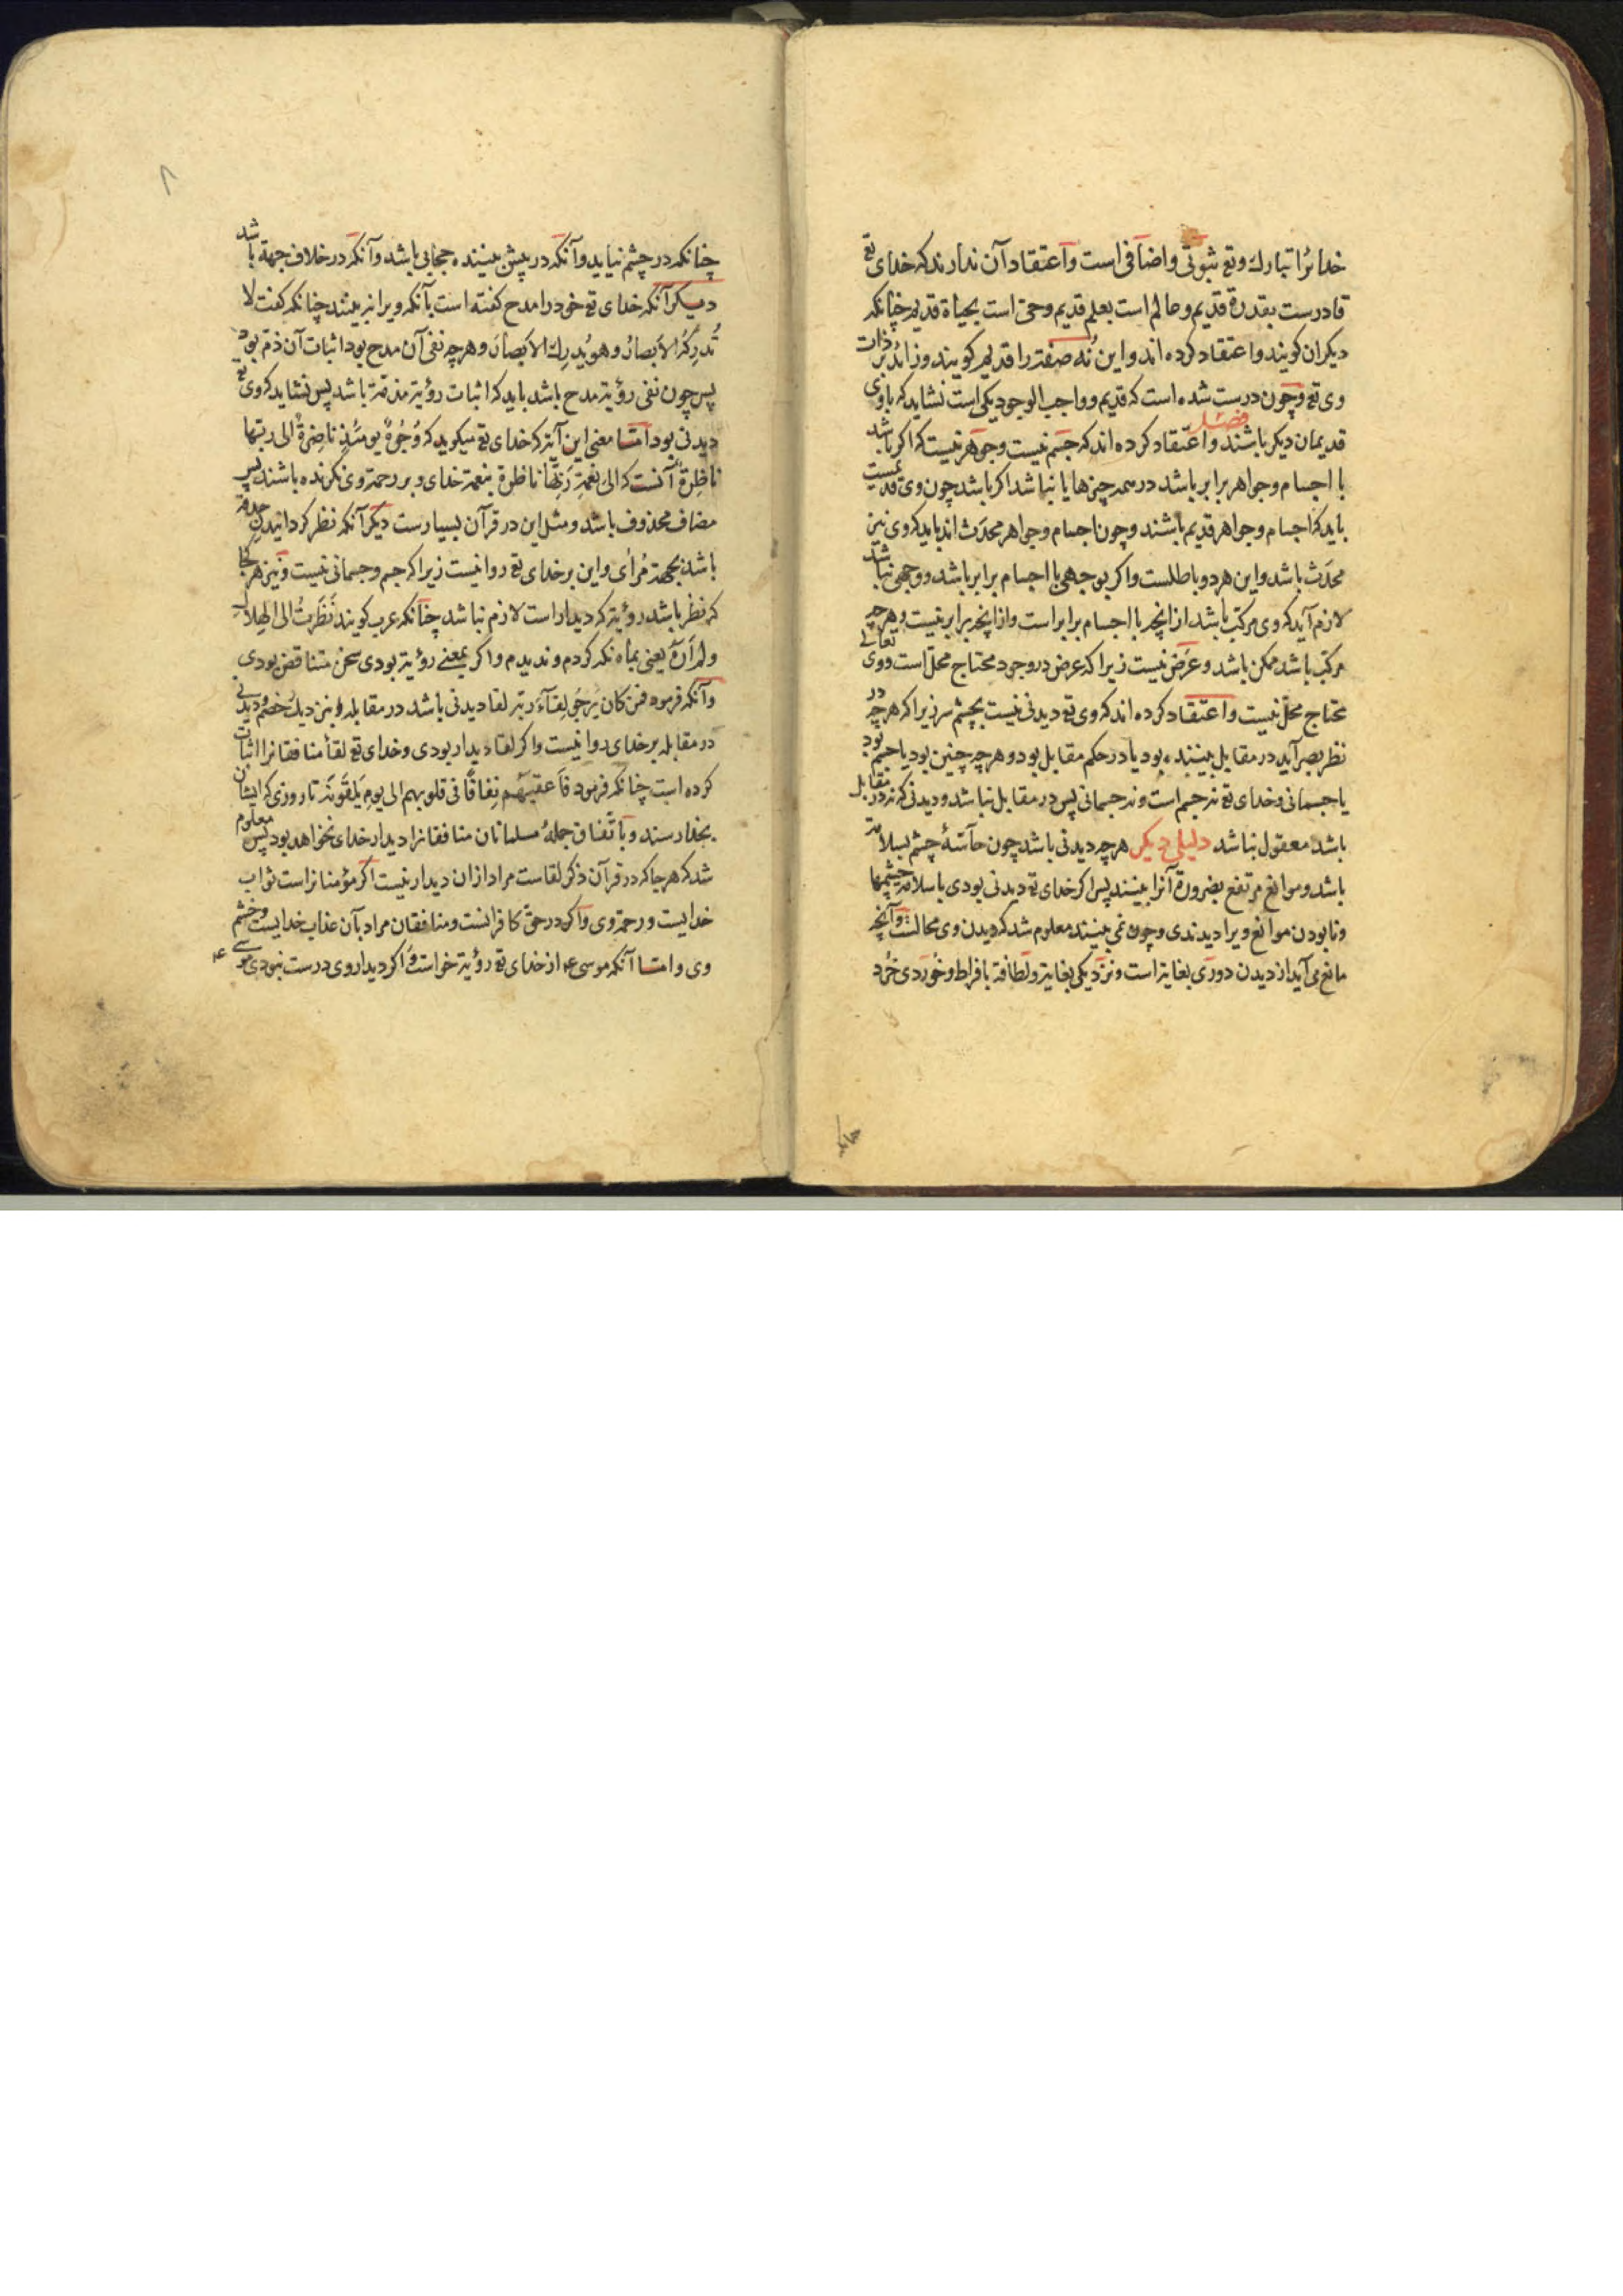 خدایرا تبارك وتع ثبوتی واضافی است واعتقاد آن ندارند که خدای تع
قادرست بقدرة قدیم وعالم است بعلم قدیم وحیّ است بحیاة قدیم چنانکه
دیکران کویند واعتقاد کرده اند واین نُه صفت را قدیم کویند وزائد بر ذات
وی تع وچون درست شده است که قدیم وواجب الوجود یکی است نشاید که باوی
قدیمان دیکر باشند فصل واعتقاد کرده اند که جسم نیست وجوهر نیست که اکر باشد
با اجسام وجواهر برابر باشد در همه چیزها یا نباشد اکر باشد چون وی قدیمست
باید که اجسام وجواهر قدیم باشند وچون اجسام وجواهر محدَث اند باید که وی نیز
محدَث باشد واین هر دو باطلست واکر بوجهی با اجسام برابر باشد ووجهی نباشد
لازم آید که وی مرکّب باشد از انچه با اجسام برابر است واز انچه برابر نیست وهرچه
مرکّب باشد ممکن باشد وعَرَض نیست زیرا که عرض در وجود محتاج محلّ است ووی تعالی
محتاج محلّ نیست واعتقاد کرده اند که وی تع دیدنی نیست بچشم سر زیرا که هرچه در
نظر بصر آید در مقابل بیننده بود یا در حکم مقابل بود وهرچه چنین بود یا جسم بود
یا جسمانی وخدای تع نه جسم است ونه جسمانی پس در مقابل نباشد ودیدنی که نه در مقابل
باشد معقول نباشد دلیلی دیکر هرچه دیدنی باشد چون حاسّهٔ چشم بسلامة
باشد وموانع مرتفع بضرورة آنرا بینند پس اکر خدای تع دیدنی بودی باسلامة چشمها
ونابودن موانع ویرا دیدندی وچون نمی بینند معلوم شد که دیدن وی محالست وآنچه
مانع می آید از دیدن دوری بغایة است ونزدیکی بغایة ولطافة بافراط وخُوردی خُرد
چنانکه در چشم نیاید وآنکه در پیش بیننده حجابی باشد وآنکه در خلاف جهة باشد
دیکر آنکه خدای تع خود را مدح کفته است بآنکه ویرا نبینند چنانکه کفت لا
تُدرِکُهُ الاَبصارُ وهو یُدرِكُ الاَبصارَ وهرچه نفی آن مدح بود اثبات آن ذمّ بود
پس چون نفی رؤیة مدح باشد باید که اثبات رؤیة مذمّة باشد پس نشاید که وی تع
دیدنی بود امّا معنی این آیة که خدای تع میکوید که وُجُوهٌ یومئذٍ ناضِرةٌ الی ربّها
ناظِرةٌ آنست که الی نعمةِ رَبِّها ناظرة بنعمة خدای وبر رحمة وی نکرنده باشند پس
مضاف محذوف باشد ومثل این در قرآن بسیارست دیکر آنکه نظر کردانیدن حدقه
باشد بجهة مُرأی واین بر خدای تع روا نیست زیرا که جسم وجسمانی نیست ونیز هر کجا
که نظر باشد رؤیة که دیدار است لازم نباشد چنانکه عرب کویند نَظَرتُ الی الهِلال
ولم اَرَهُ یعنی بماه نکه کردم وندیدم واکر بمعنی رؤیة بودی سخن متناقض بودی
وآنکه فرمود فمن کان یَرجُو لِقآءَ ربّه لقا دیدنی باشد در مقابله ونزدیك خصم دیدنی
در مقابله بر خدای روا نیست واکر لقا دیدار بودی وخدای تع لقأ منافقانرا اثبات
کرده است چنانکه فرمود فاَعقبَهُم نِفاقًا فی قلوبهم الی یومِ یَلقَونَهُ تا روزی که ایشان
بخدا رسند وباتّفاق جملهٔ مسلمانان منافقانرا دیدار خدای نخواهد بود پس معلوم
شد که هرجا که در قرآن ذکر لقاست مراد ازان دیدار نیست اکر مؤمنانراست ثواب
خدایست ورحمة وی واکر در حقّ کافرانست ومنافقان مراد بآن عذاب خدایست وخشم
وی وامّا آنکه موسی ع از خدای تع رؤیة خواست واکر دیدار وی درست نبودی موسی ع